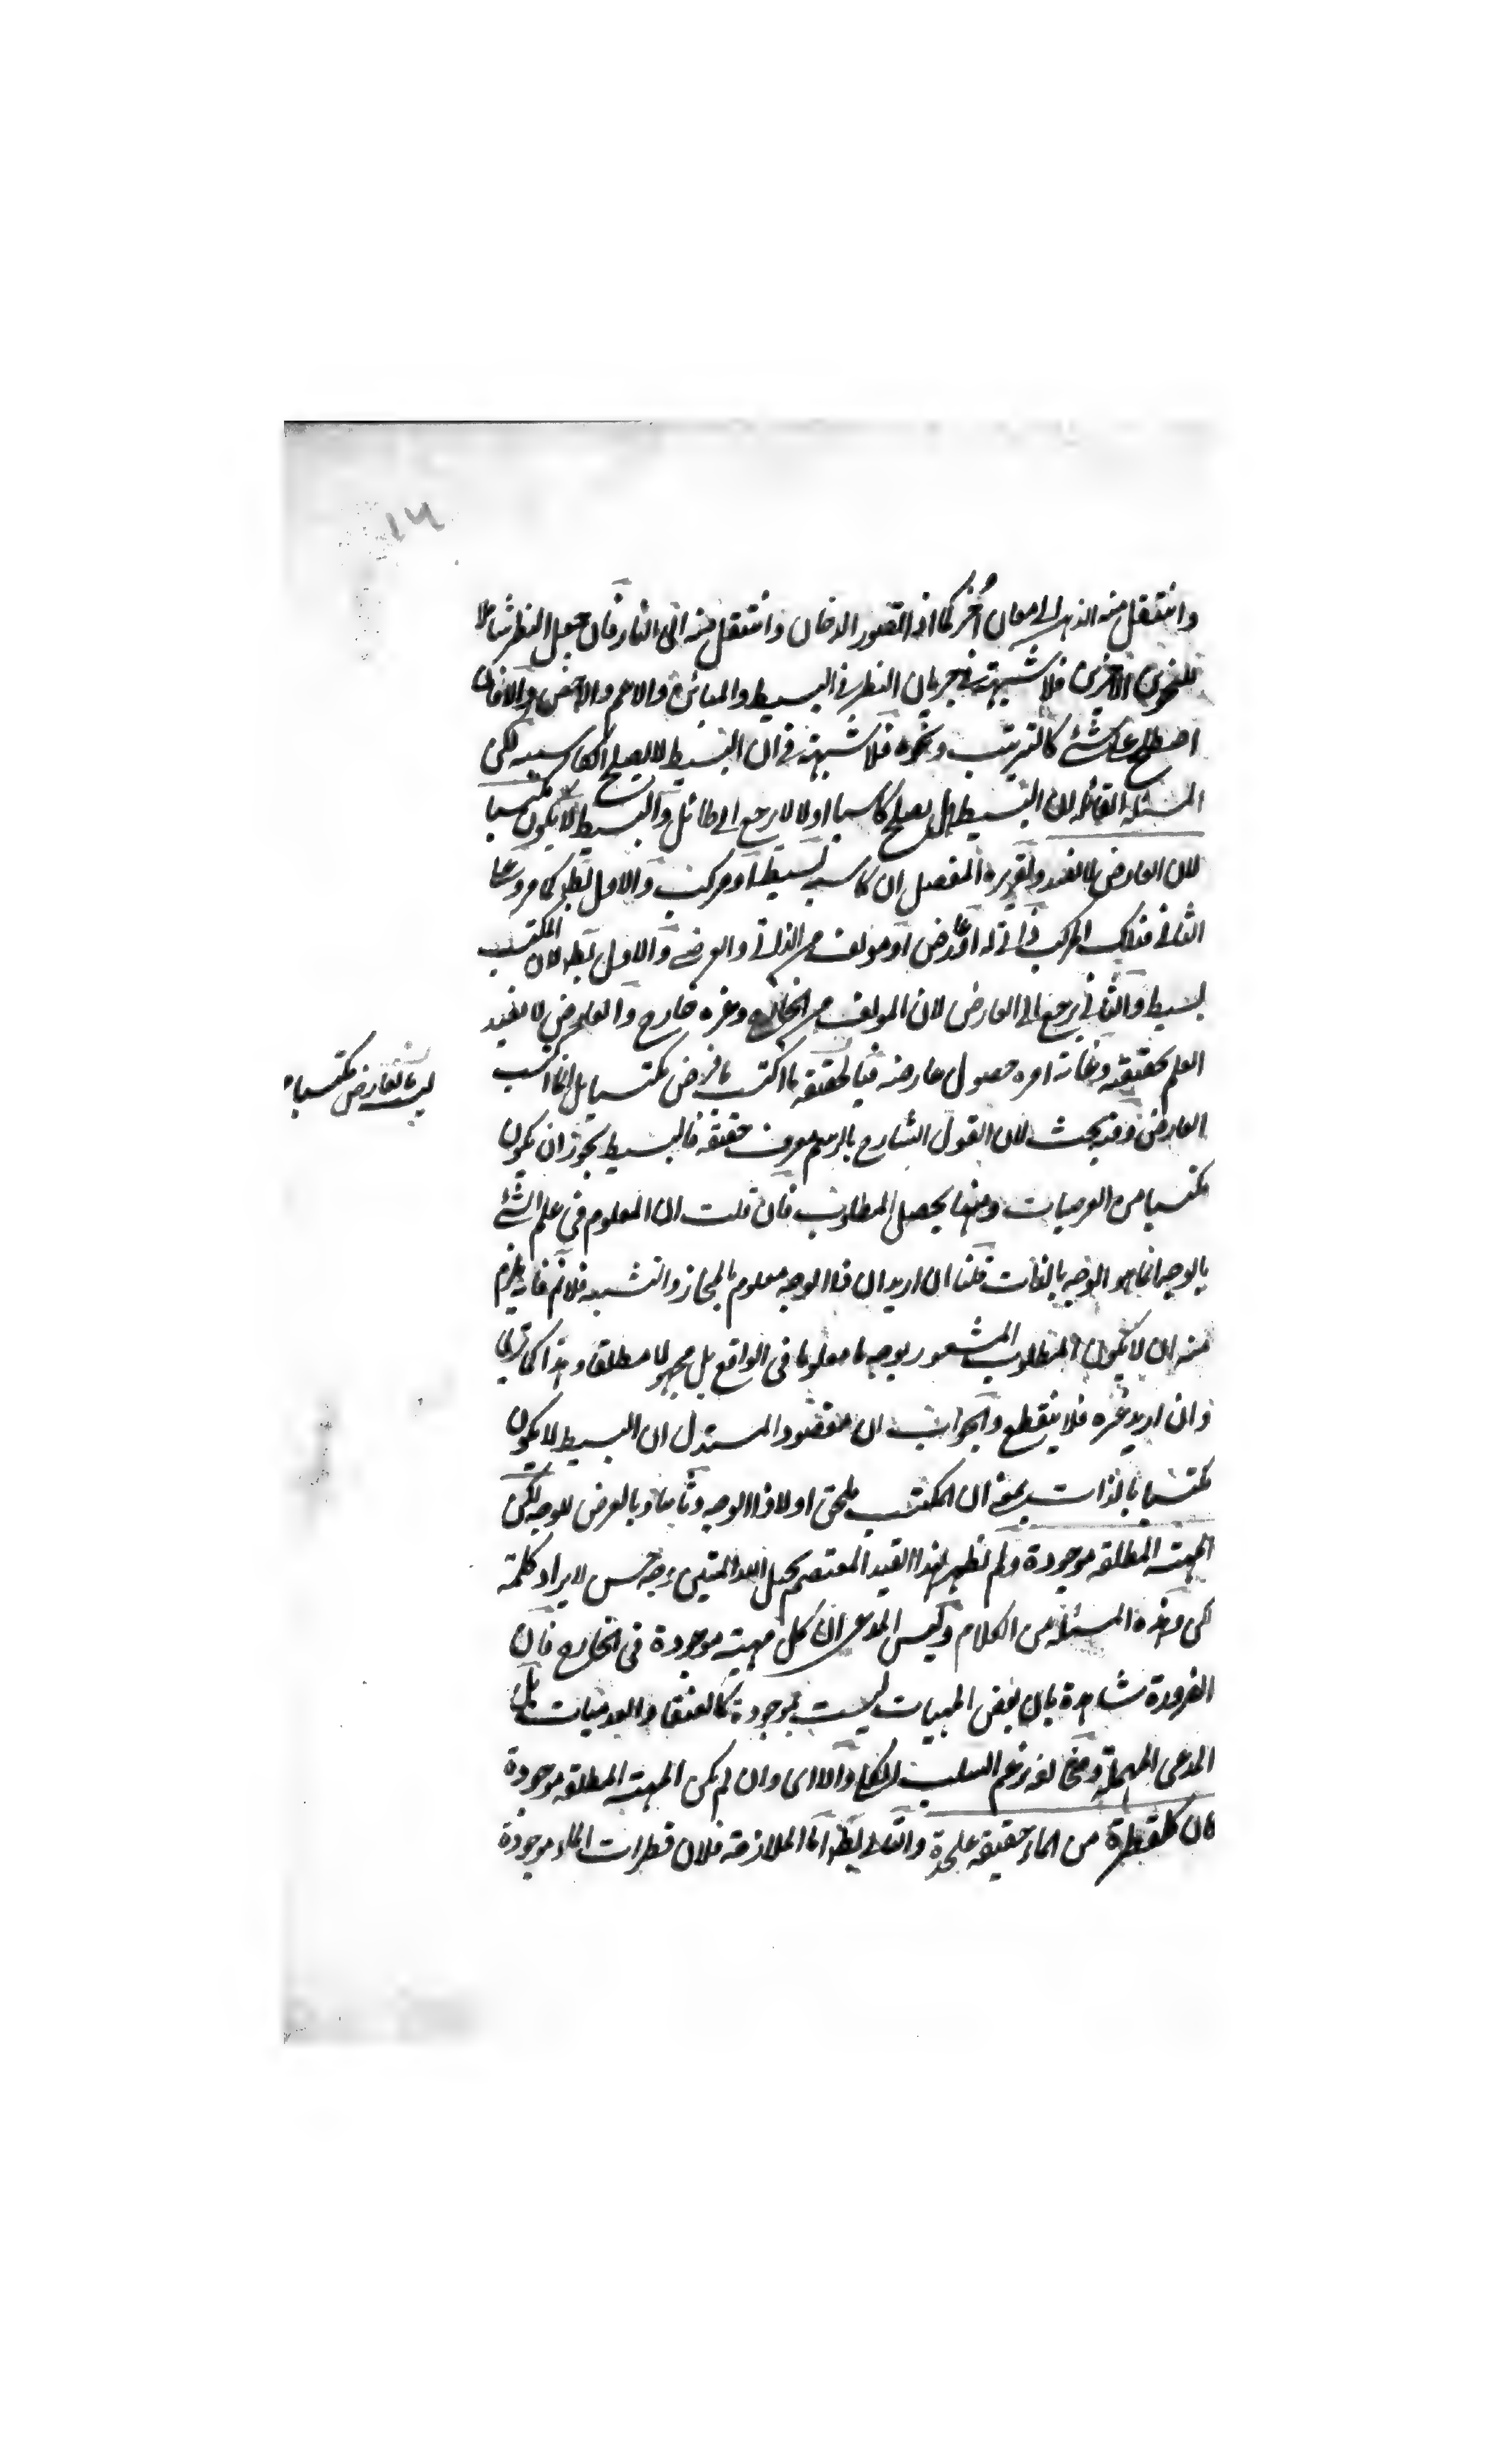 ١٤
وانتقل منه الذهن الى معان اُخر كما اذا تصور الدخان وانتقل منه الى النار فان جعل النظر شاملا
للنحوين الاخرين فلا شبهة في جريان النظر في البسيط والمبائن والاعم والاخص والا فان
اصطلح على شئ كالترتيب ونحوه فلا شبهة في ان البسيط لا يصلح لكاسبيه لكن
المسئلة القائلة لان البسيط هل يصلح كاسبا اولا لا يرجع الى طائل والبسيط لا يكون مكتسبا
لان العارض لا يفيد وتقريره المفصل ان كاسبه بسيط او مركب والاول بطل كما مر وعلى
الثاني فذلك المركب ذاتي له او عارض او مؤلف من الذاتي والعرضي والاول بطل لان المكتسب
بسيط والثاني يرجع الى العارض لان المولف من الخارج وغيره خارج والعارض لا يفيد
العلم بحقيقته وغاية امره حصول عارضه فبالحقيقة ما اكتسب ما فرض مكتسبا بل انما اكتسب
العارض وفيه بحث لان القول الشارح بالرسم معرف حقيقة فالبسيط يجوز ان يكون
مكتسبا من العرضيات ومنها يحصل المطلوب فان قلت ان المعلوم في علم الشئ
بالوجه انما هو الوجه بالذات قلنا ان اريد ان ذا الوجه معلوم بالمجاز والتشبيه فلا نم فانه يلزم
منه ان لا يكون المطلوب المشعور بوجه ما معلوما في الواقع بل مجهولا مطلقا وهذا كما ترى
وان اريد غيره فلا ينقطع والجواب ان مقصود المستدل ان البسيط لا يكون
مكتسبا بالذات بمعنى ان المكتسب اولا ذا الوجه وثانيا وبالعرض للوجه لكن
المهية المطلقة موجودة ولم يظهر لهذا القيد المعتصم بحبل الله المتين وجه حسن لايراد كلمة
لكن وهذه المسئلة من الكلام وليس المدعى ان كل مهية موجودة في الخارج فان
الضرورة شاهدة بان بعض المهيات ليست بموجودة كالعنقا والعدميات بل
المدعى المهملة ومخالفه يزعم السلب الكلي والا اي وان لم يكن المهية المطلقة موجودة
كان كل قطرة من الماء حقيقة علحدة والتالي بطل اما الملازمة فلان قطرات الماء موجودة
ليس بالعارض مكتسبا